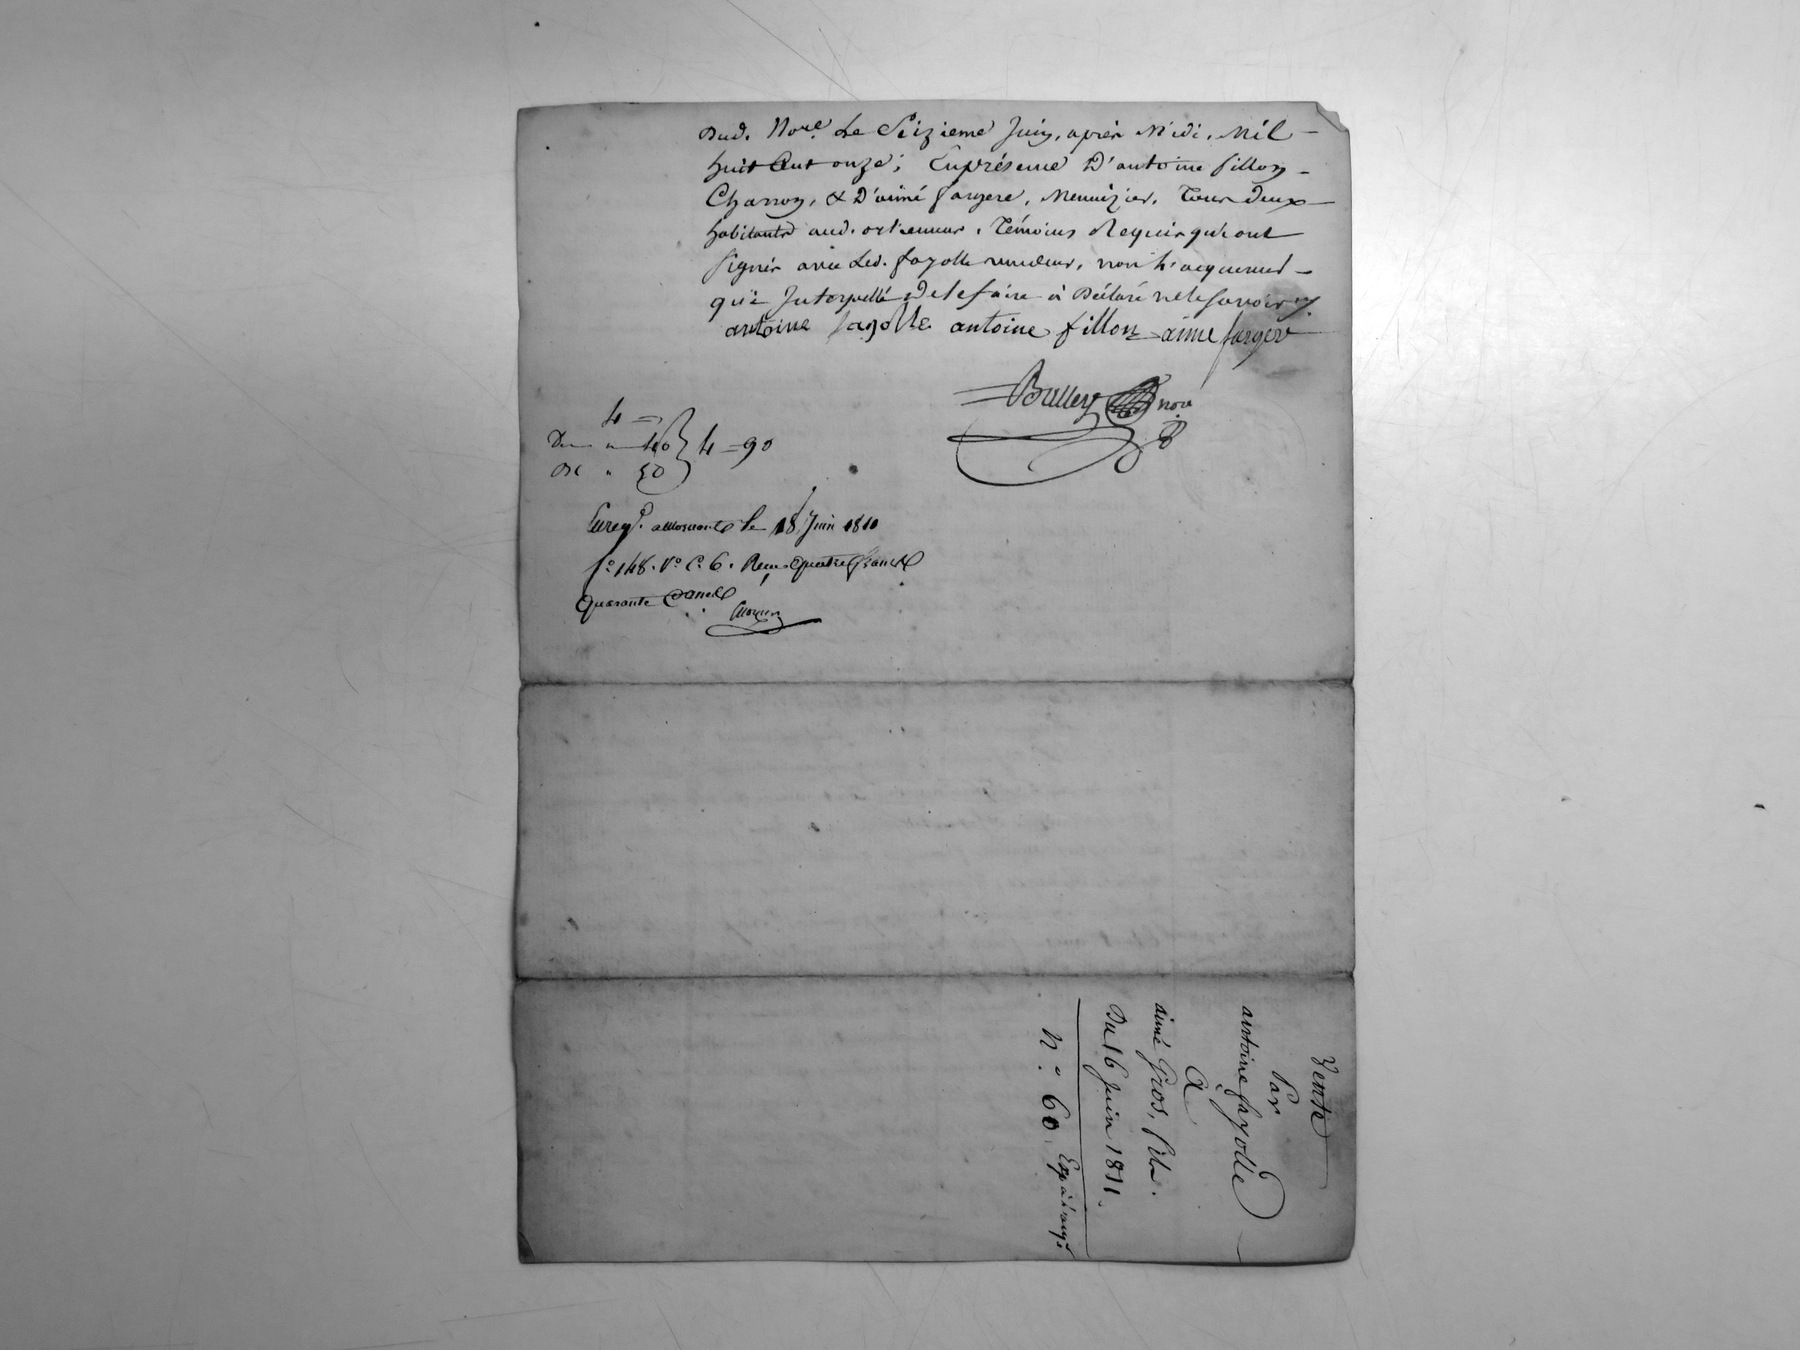 Dud. No.re Le Seizieme Juin, après Midi, Mil
huit Cent onze; En présence D'antoine fillon
Charron, & D'aimé fargere, Menuizier, Tous deux
habitants aud. Témoins Requis qui ont
Signés avec Led. fayolle vendeur, non L'acquereur
qui Interpellé De le faire à Déclaré ne le savoir
antoine fayolle antoine fillon aime fargere
Bullery no.re
4 =
40 } 4 = 90
50
Enreg.é le 18 Juin 1811
f.o 148. V.o C.e 6. Reçu quatre francs
quarante Cent.
Vente
Par
antoine fayolle
A
aimé Gros, fils.
Du 16 Juin 1811.
N.o 60. Exp.